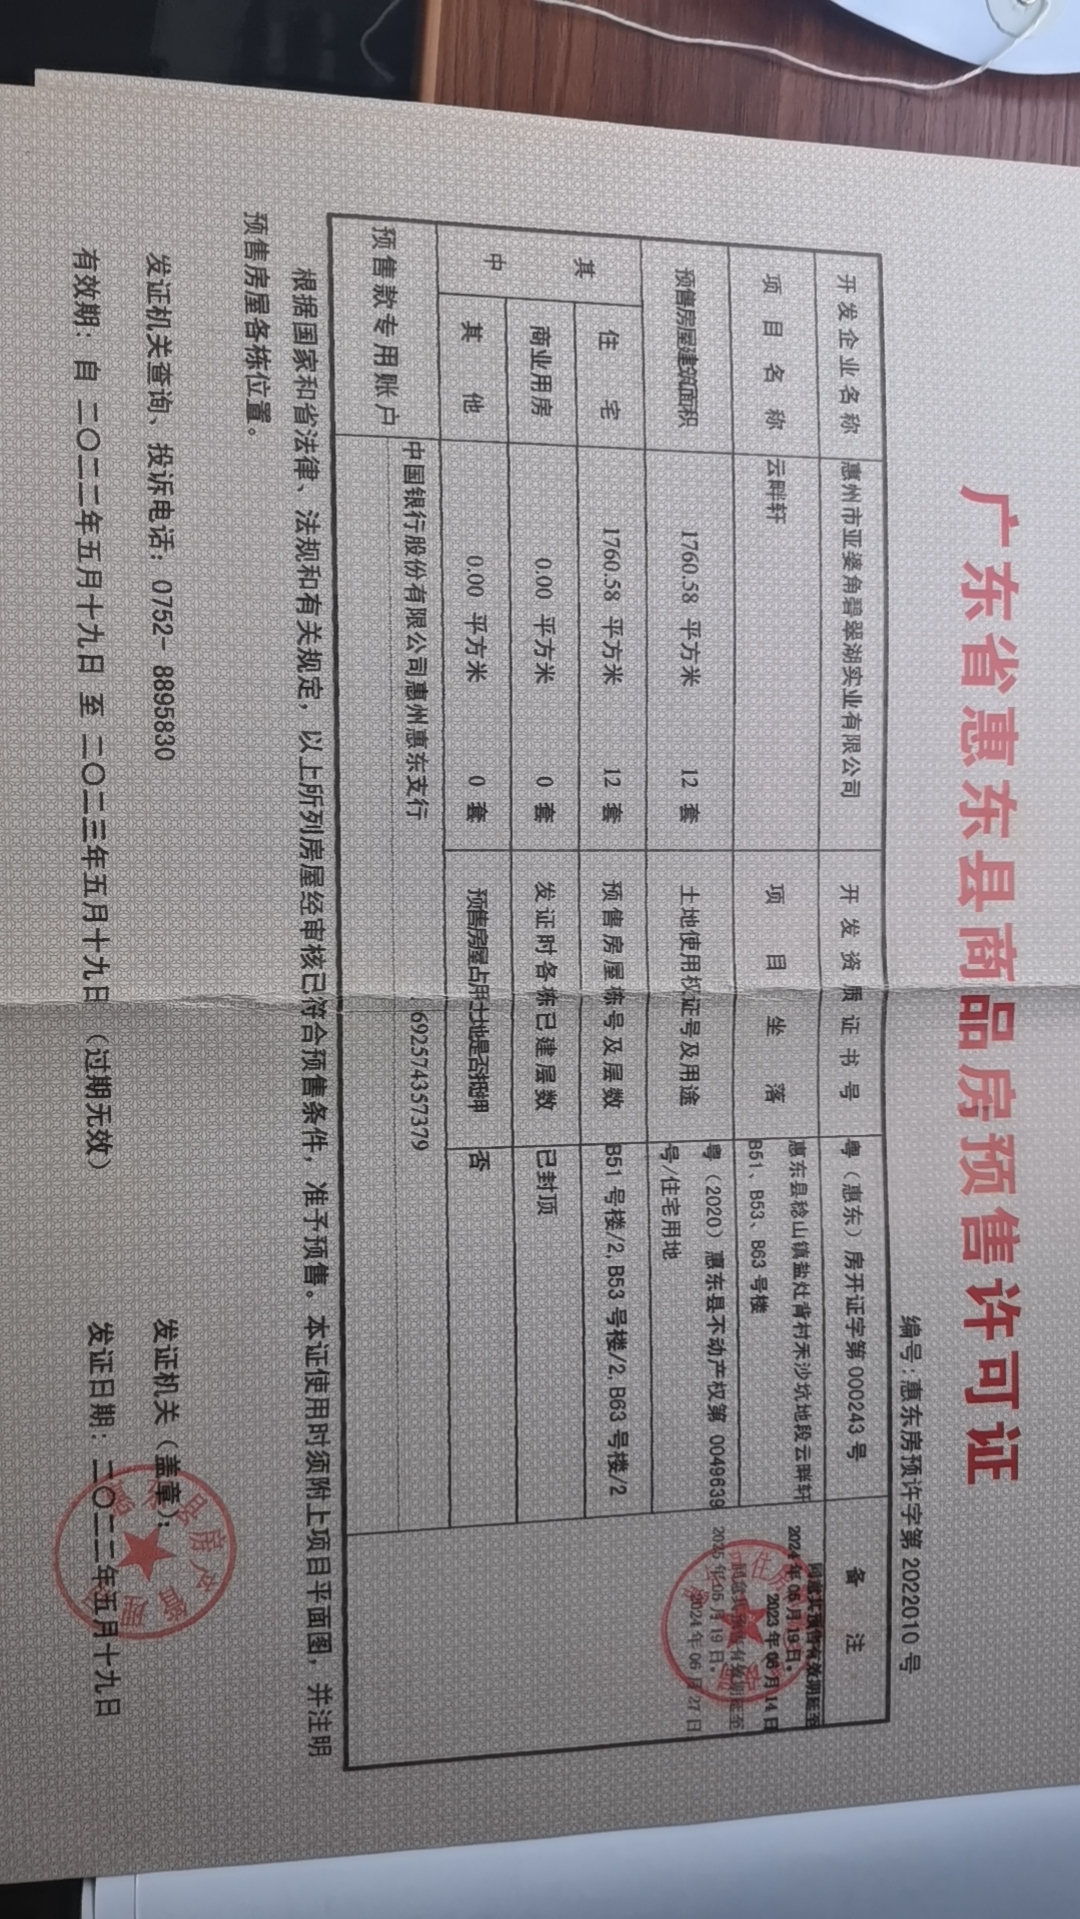 广东省惠东县商品房预售许可证
编号:惠东房预许字第 2022010 号
开发企业名称 惠州市亚婆角碧翠湖实业有限公司 开发资质证书号 粤（惠东）房开证字第 000243 号 备 注
项目名称 云畔轩 项目坐落 惠东县稔山镇盐灶背村禾沙坑地段云畔轩
B51、B53、B63 号楼
预售房屋建筑面积 1760.58 平方米 12 套 土地使用权证号及用途 粤（2020）惠东县不动产权第 0049639
号/住宅用地
其中
住 宅 1760.58 平方米 12 套 预售房屋栋号及层数 B51 号楼/2, B53 号楼/2, B63 号楼/2
商业用房 0.00 平方米 0 套 发证时各栋已建层数 已封顶
其 他 0.00 平方米 0 套 预售房屋占用土地是否抵押 否
预售款专用账户 中国银行股份有限公司惠州惠东支行 692574357379
同意其预售有效期延至
2024 年 05 月 19 日。
2023 年 06 月 14 日
同意其预售有效期延至
2025 年 05 月 19 日。
2024 年 06 月 27 日
根据国家和省法律、法规和有关规定，以上所列房屋经审核已符合预售条件，准予预售。本证使用时须附上项目平面图，并注明
预售房屋各栋位置。
发证机关查询、投诉电话：0752- 8895830 发证机关（盖章）：
有效期：自 二〇二二年五月十九日 至 二〇二三年五月十九日 （过期无效） 发证日期：二〇二二年五月十九日